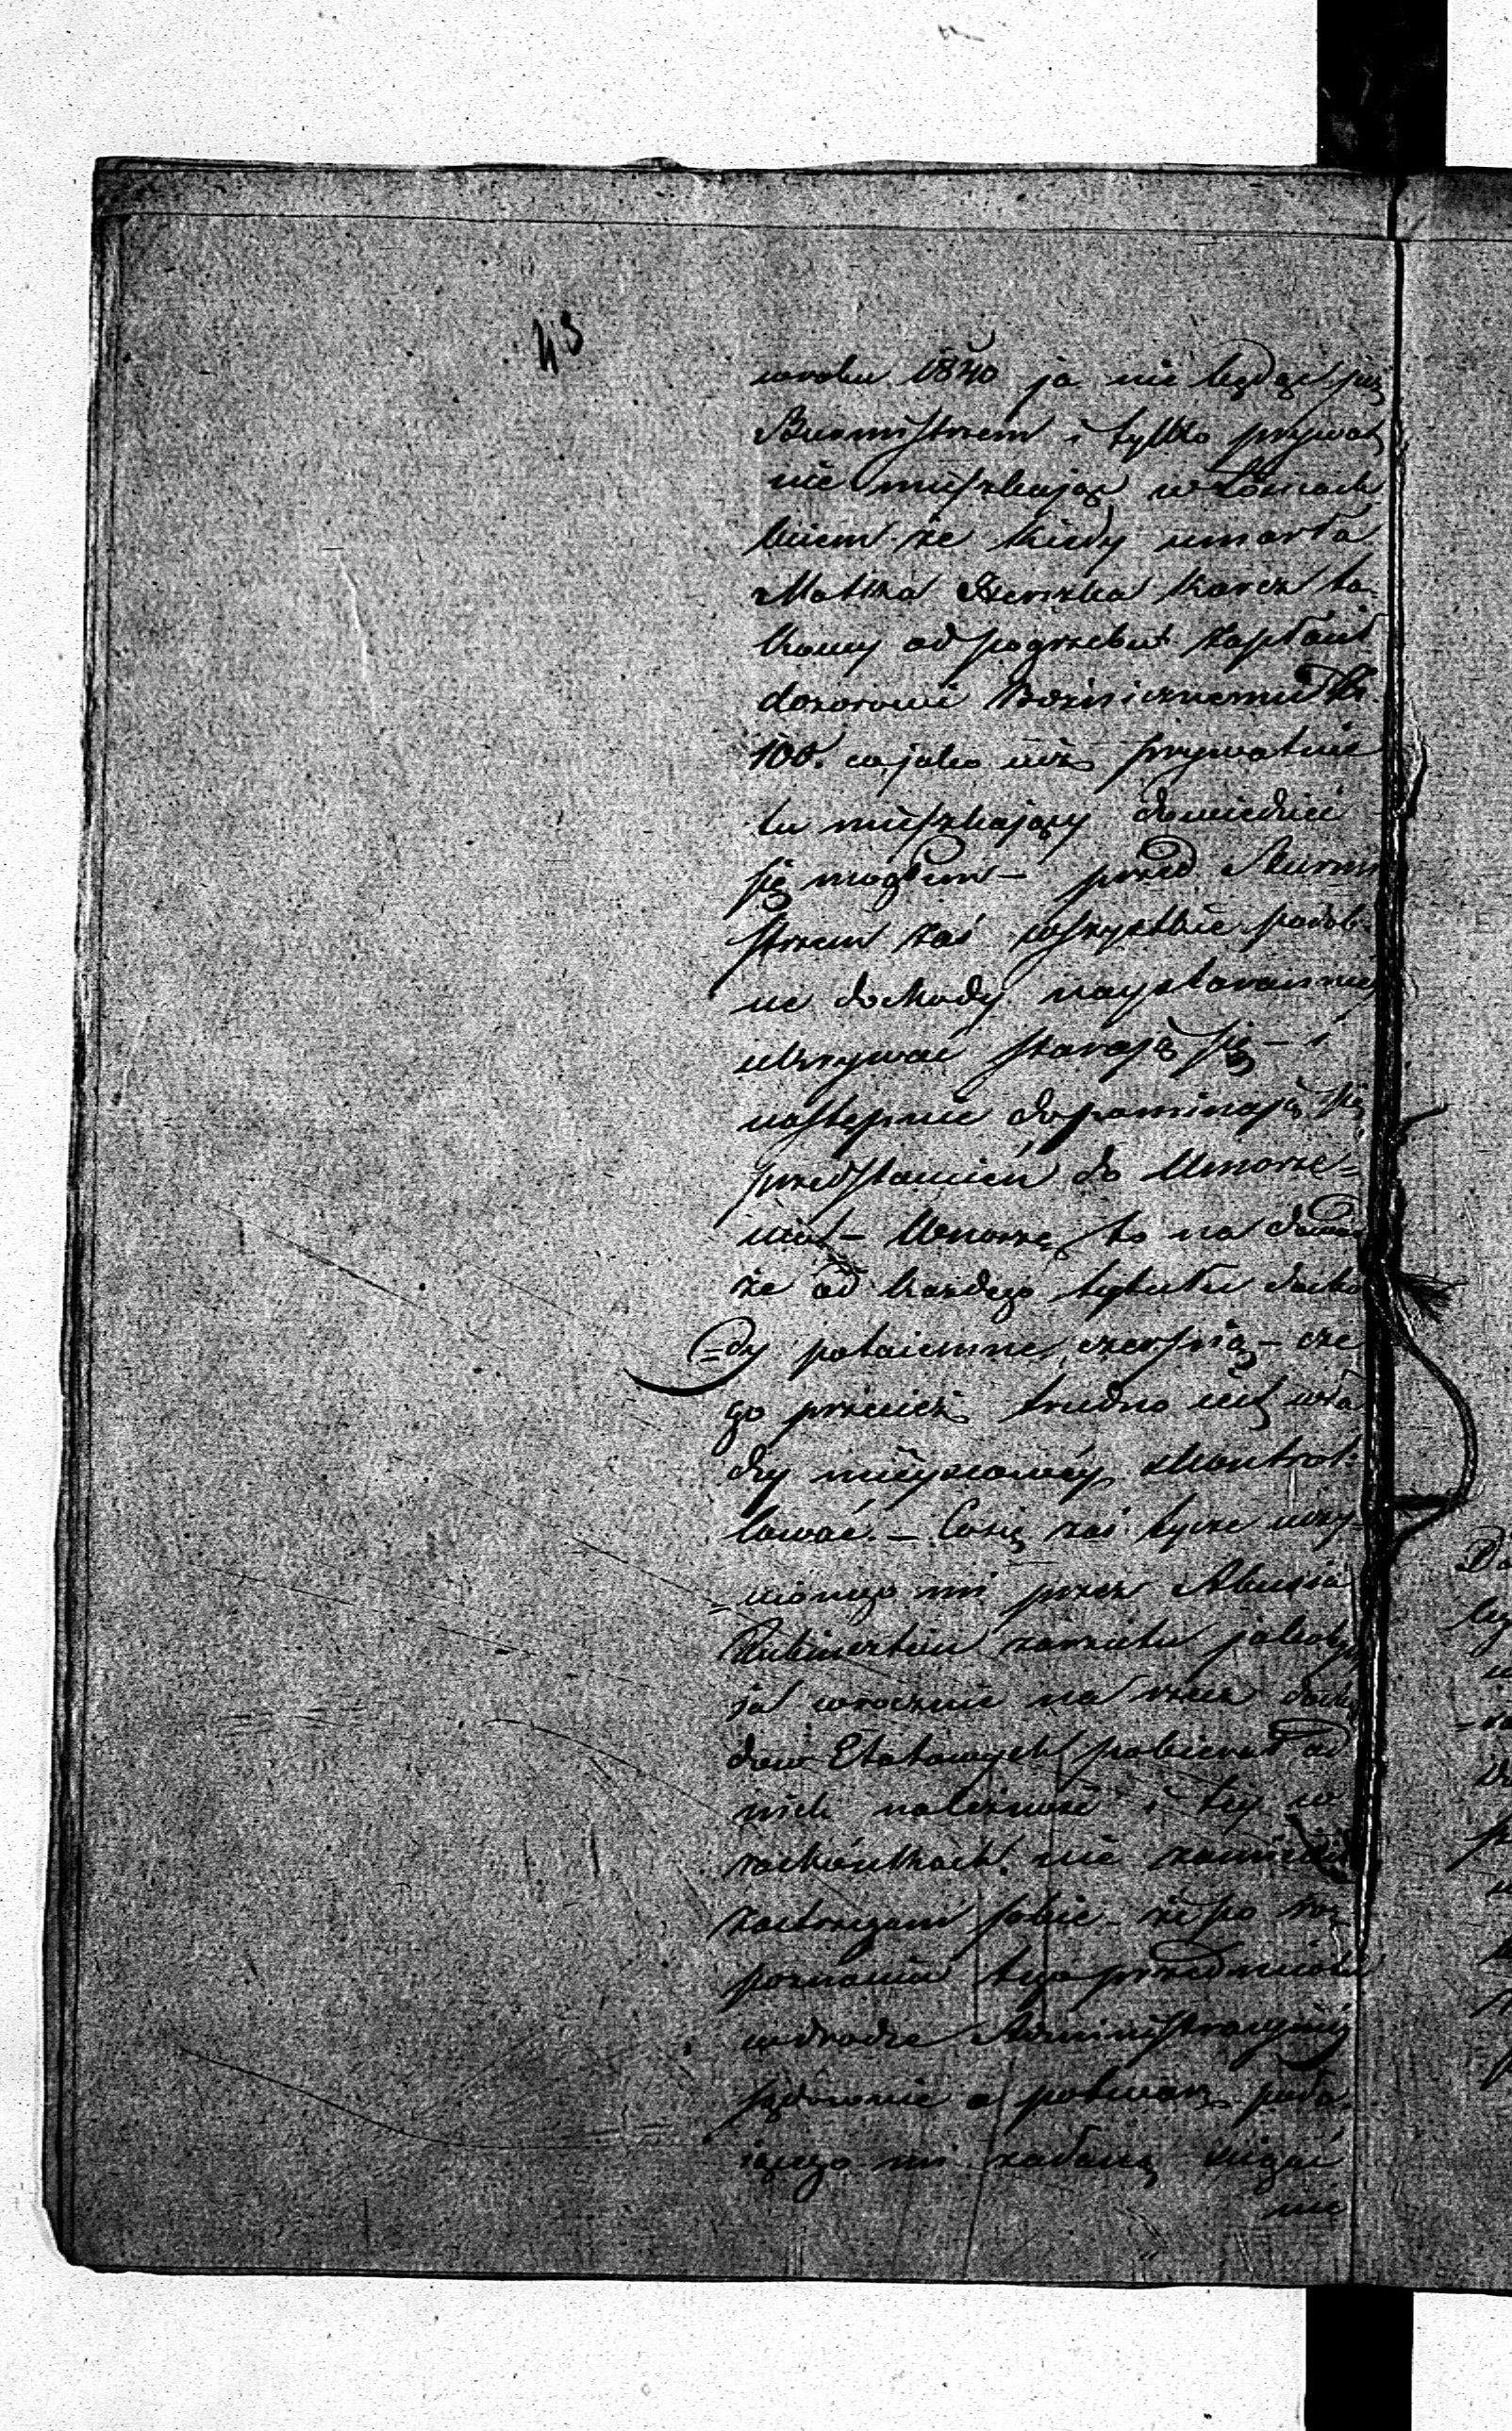 43
w roku 1840 ja nie będąc już
Burmistrzem i tylko prywat
nie mieszkając w Łosicach
wiem że kiedy umarła
Matka Herszka Karcz ta-
kowy od pogrzebu zapłacił
dozorowi Bożnicznemu Zł.
100. co jako już prywatnie
tu mieszkający dowiedzieć
się mogłem – przed Burmi
strzem zaś wszystkie podob-
ne dochody naystaranniej
ukrywać starają się – i
następnie dopominają się
przedstawień do Umorze-
nia – Uważę to na dowód
że od każdego tytułu docho
=dy potaiemne czerpią – cze
go przecież trudno iest wła
dzy mieyscowéy zkontrol-
lować. – Co się zaś tycze uczy-
=nionego mi przez Abusia
Rubinsztein zarzutu jakoby
ja wrocznie na rzecz docho
dów Etatowych pobierał od
nich należność i tey w
rachunkach nie zamieścił
zastrzegam sobie – że po roz-
poznaniu tego przedmiotu
w drodze Administracyinéy
sądownie o potwarz poda-
iącego mi zadaną ścigać
nie